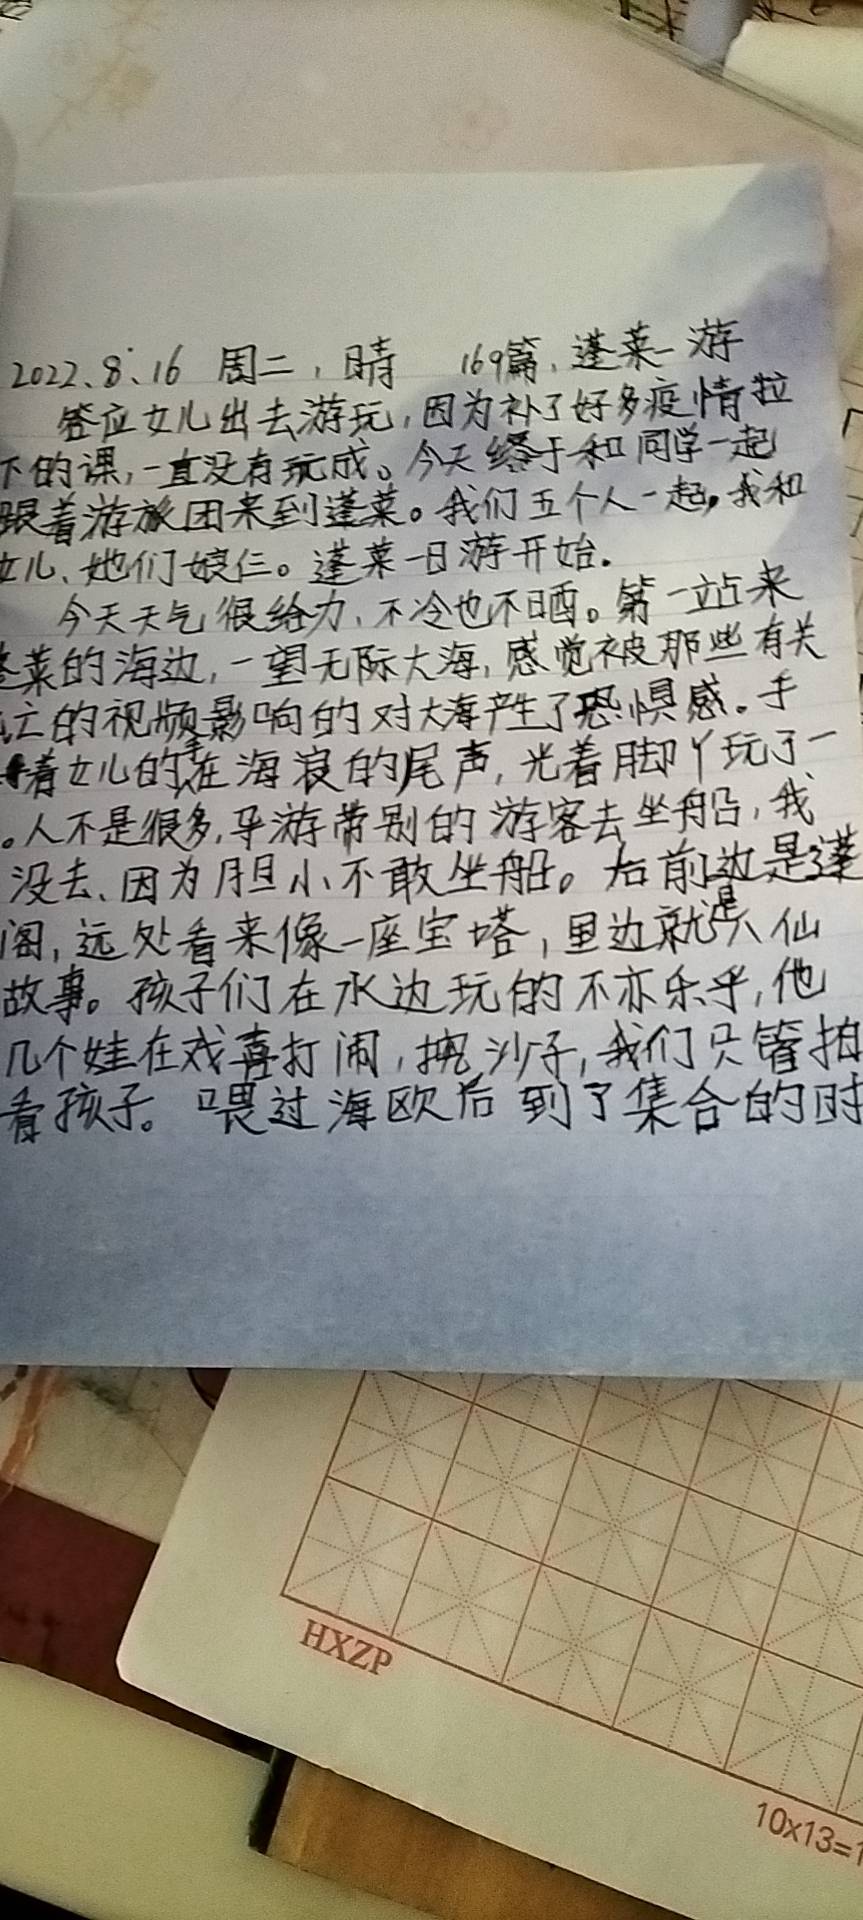 2022、8、16 周二，晴 169篇，蓬莱一游
答应女儿出去游玩，因为补了好多疫情拉
下的课，一直没有玩成。今天终于和同学一起
跟着游旅团来到蓬莱。我们五个人一起，我和
女儿、她们娘仨。蓬莱一日游开始.
今天天气很给力，不冷也不晒。第一站来
莱的海边，一望无际大海，感觉被那些有关
亡的视频影响的对大海产生了恐惧感。手
着女儿的手在海浪的尾声，光着脚丫玩了一
。人不是很多，导游带别的游客去坐船，我
没去、因为胆小不敢坐船。右前边是蓬
阁，远处看来像一座宝塔，里边就是八仙
故事。孩子们在水边玩的不亦乐乎，他
几个娃在戏喜打闹，挖沙子，我们只管拍
看孩子。喂过海欧后到了集合的时
HXZP
10x13=1